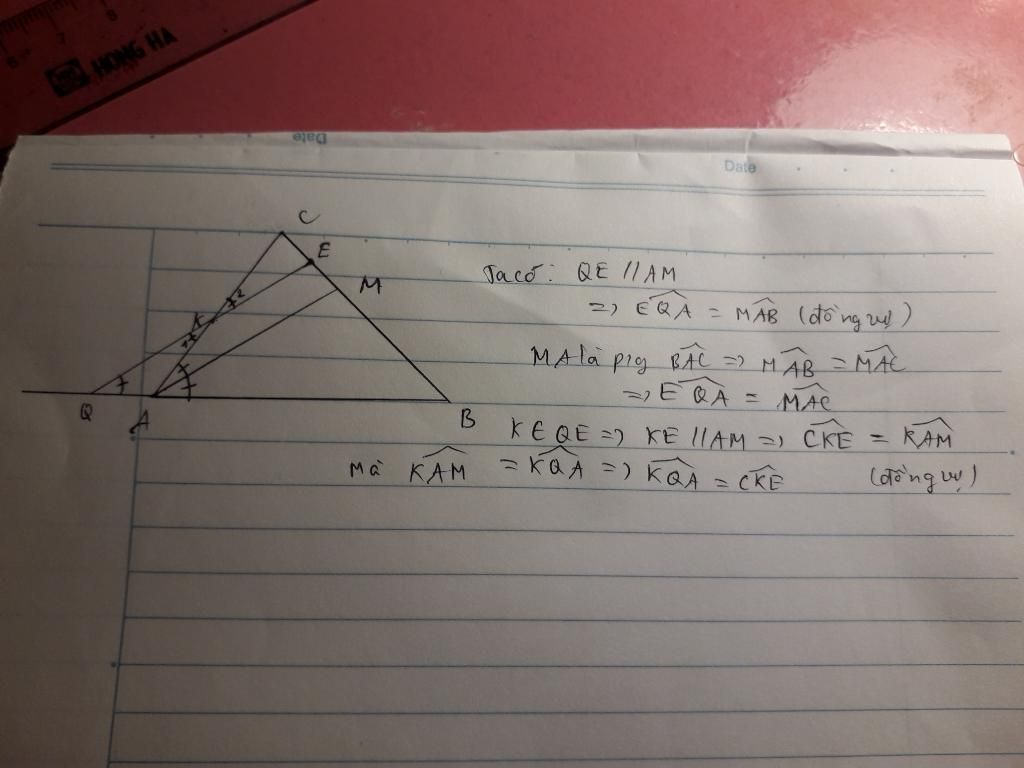 8
7
6
HONG HA
Date
Date
C
E
M
K
2
Q
A
B
Ta có: QE // AM
=> EQA^ = MAB^ (đồng vị)
MA là p/g BAC^ => MAB^ = MAC^
=> EQA^ = MAC^
K ∈ QE => KE // AM => CKE^ = KAM^
(đồng vị)
Mà KAM^ = KQA^ => KQA^ = CKE^